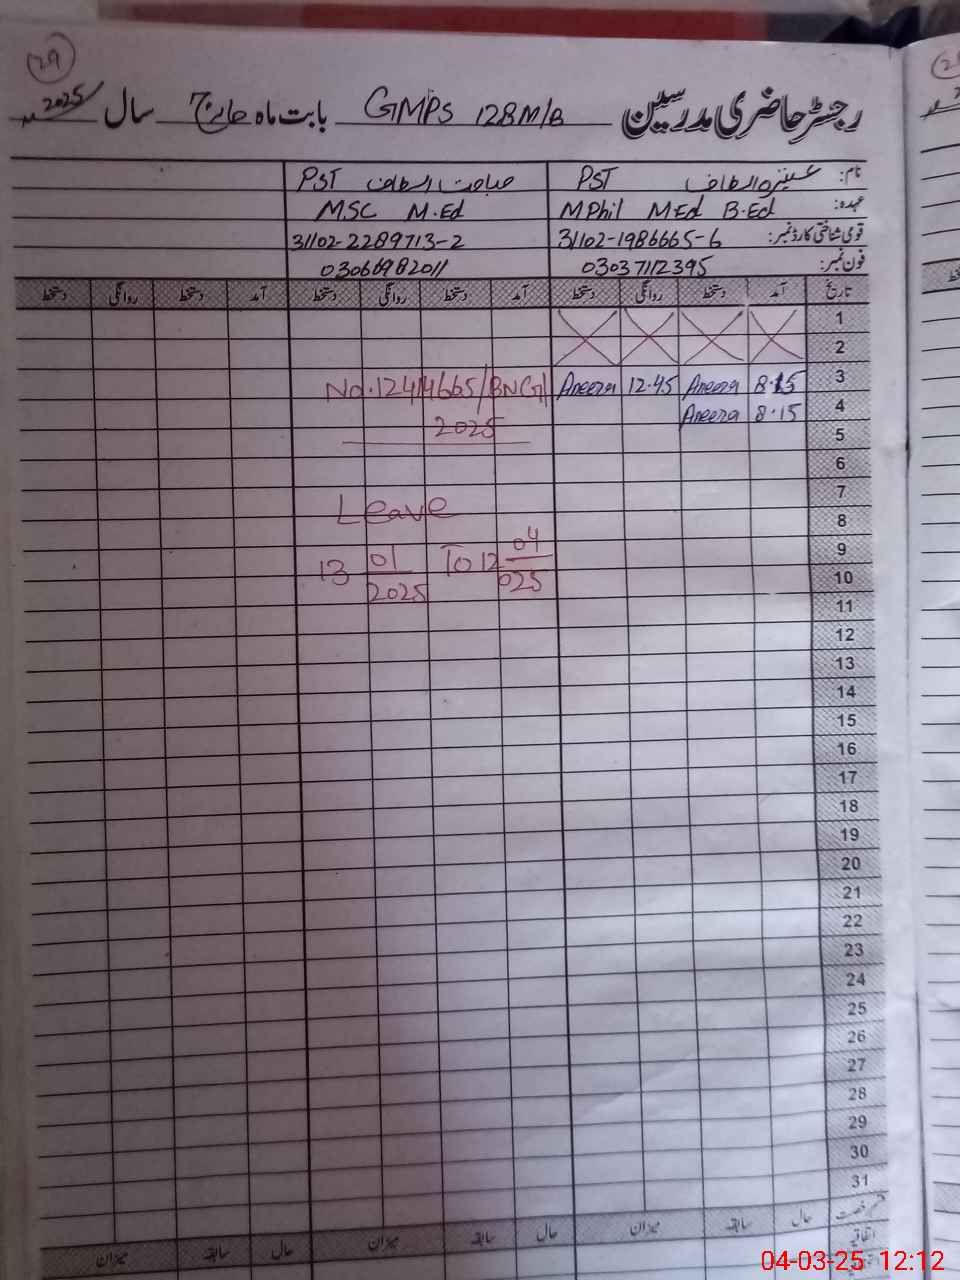 29
رجسٹر حاضری مدرسین GMPS 128 M/B بابت ماہ مارچ سال 2025
نام: PST الطاف PST صباحت الطاف
عہدہ: MPhil MEd B.Ed MSC M.Ed
قومی شناختی کارڈ نمبر: 31102-1986665-6 31102-2289713-2
فون نمبر: 03037112395 03066982011
تاریخ آمد دستخط روانگی دستخط آمد دستخط روانگی دستخط آمد دستخط روانگی دستخط
1
2
3 8.15 Aneeza 12.45 Aneeza
No.124/4665/BNG/
4 8.15 Aneeza
2025
5
6
7
Leave
8
9
13 01/2025 To 12 04/025
10
11
12
13
14
15
16
17
18
19
20
21
22
23
24
25
26
27
28
29
30
31
حال سابقہ میزان حال سابقہ میزان حال سابقہ میزان
اتفاقیہ
04-03-25 12:12